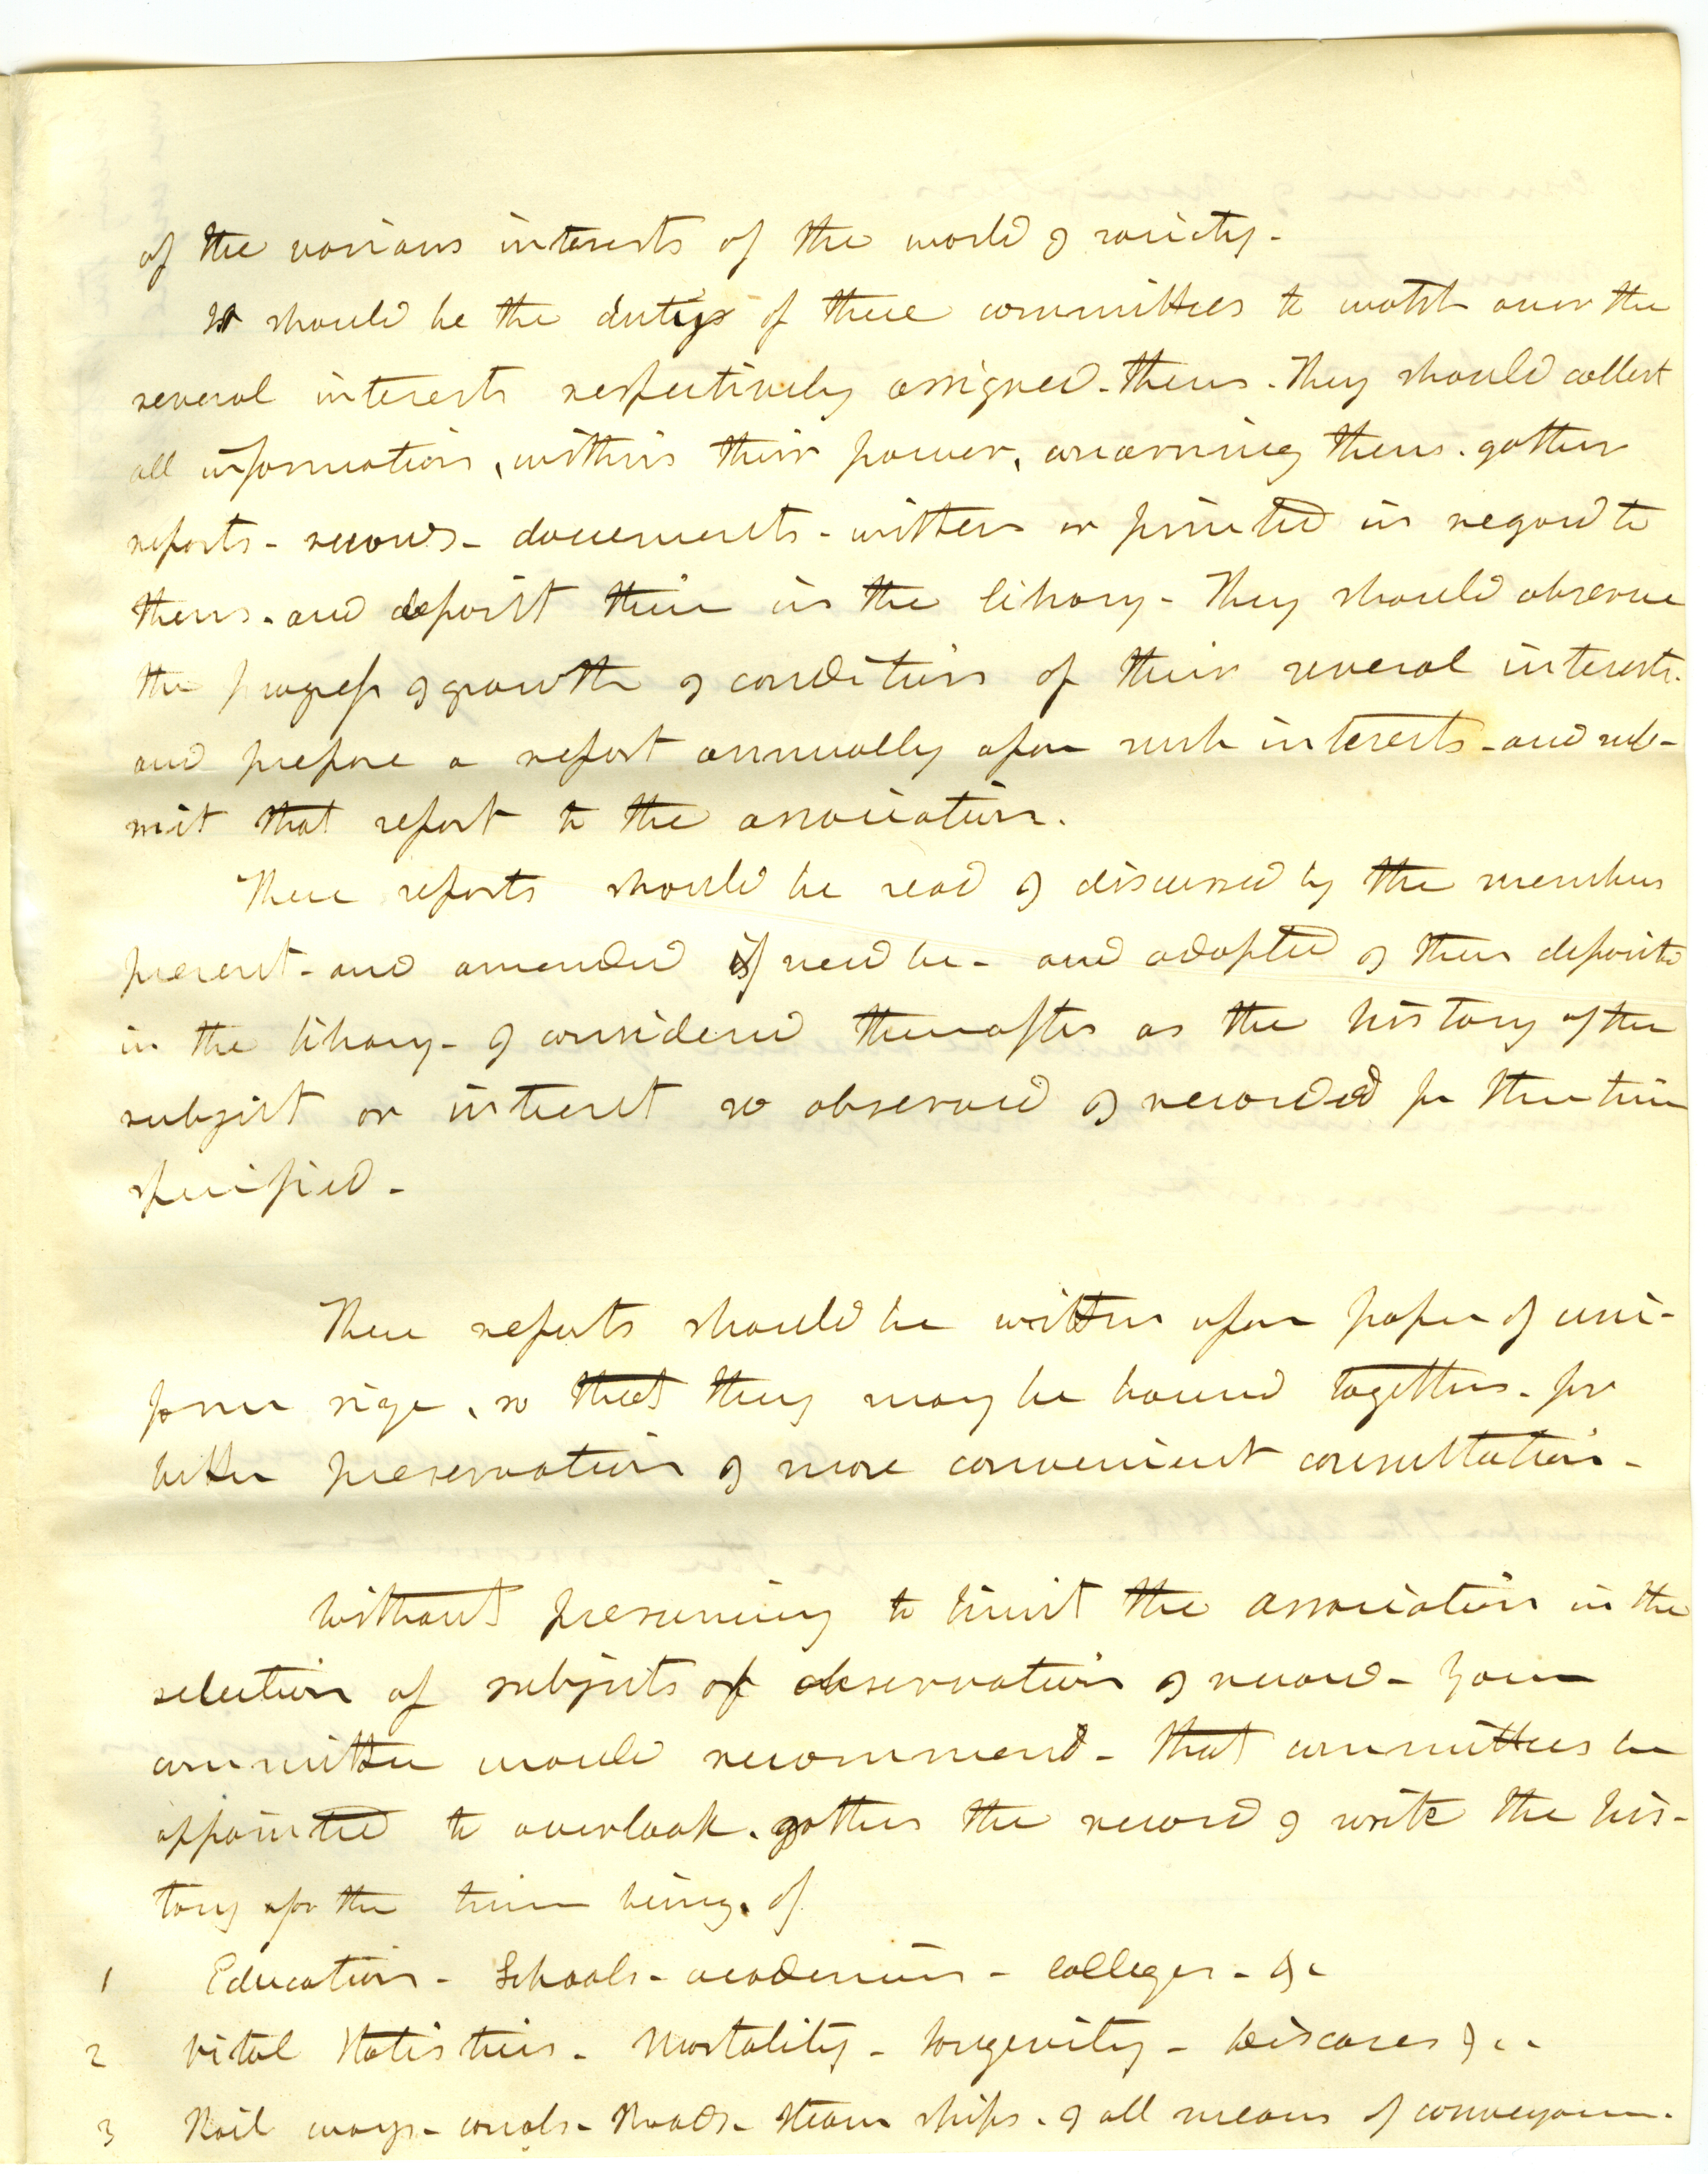 of the various interests of the world & society -
It should be the duty of these committees to watch over the
several interests respectively assigned - them - They should collect
all information, within their power, concerning them. gather
reports - records - documents - written or printed in regard to
them - and deposit them in the library - They should observe
the progress & growth & condition of their several interests -
and prepare a report annually upon such interests - and sub-
mit that report to the association.
These reports should be read & discussed by the members
present - and amended if need be - and adopted & then deposited
in the library - & considered thereafter as the history of the
subject or interest so observed & recorded for the time
specified -
These reports should be written upon paper of uni-
form size, so that they may be bound together - for
better preservation & more convenient consultation -
Without presuming to limit the association in the
selection of subjects of observation & record - Your
committee would recommend - that committees be
appointed to overlook. gather the record & write the his-
tory for the time being, of
1 Education - Schools - academies - colleges - &c
2 Vital Statistics - Mortality - longevity - Diseases &c -
3 Rail ways - canals - Roads - steam ships - & all means of conveyance.